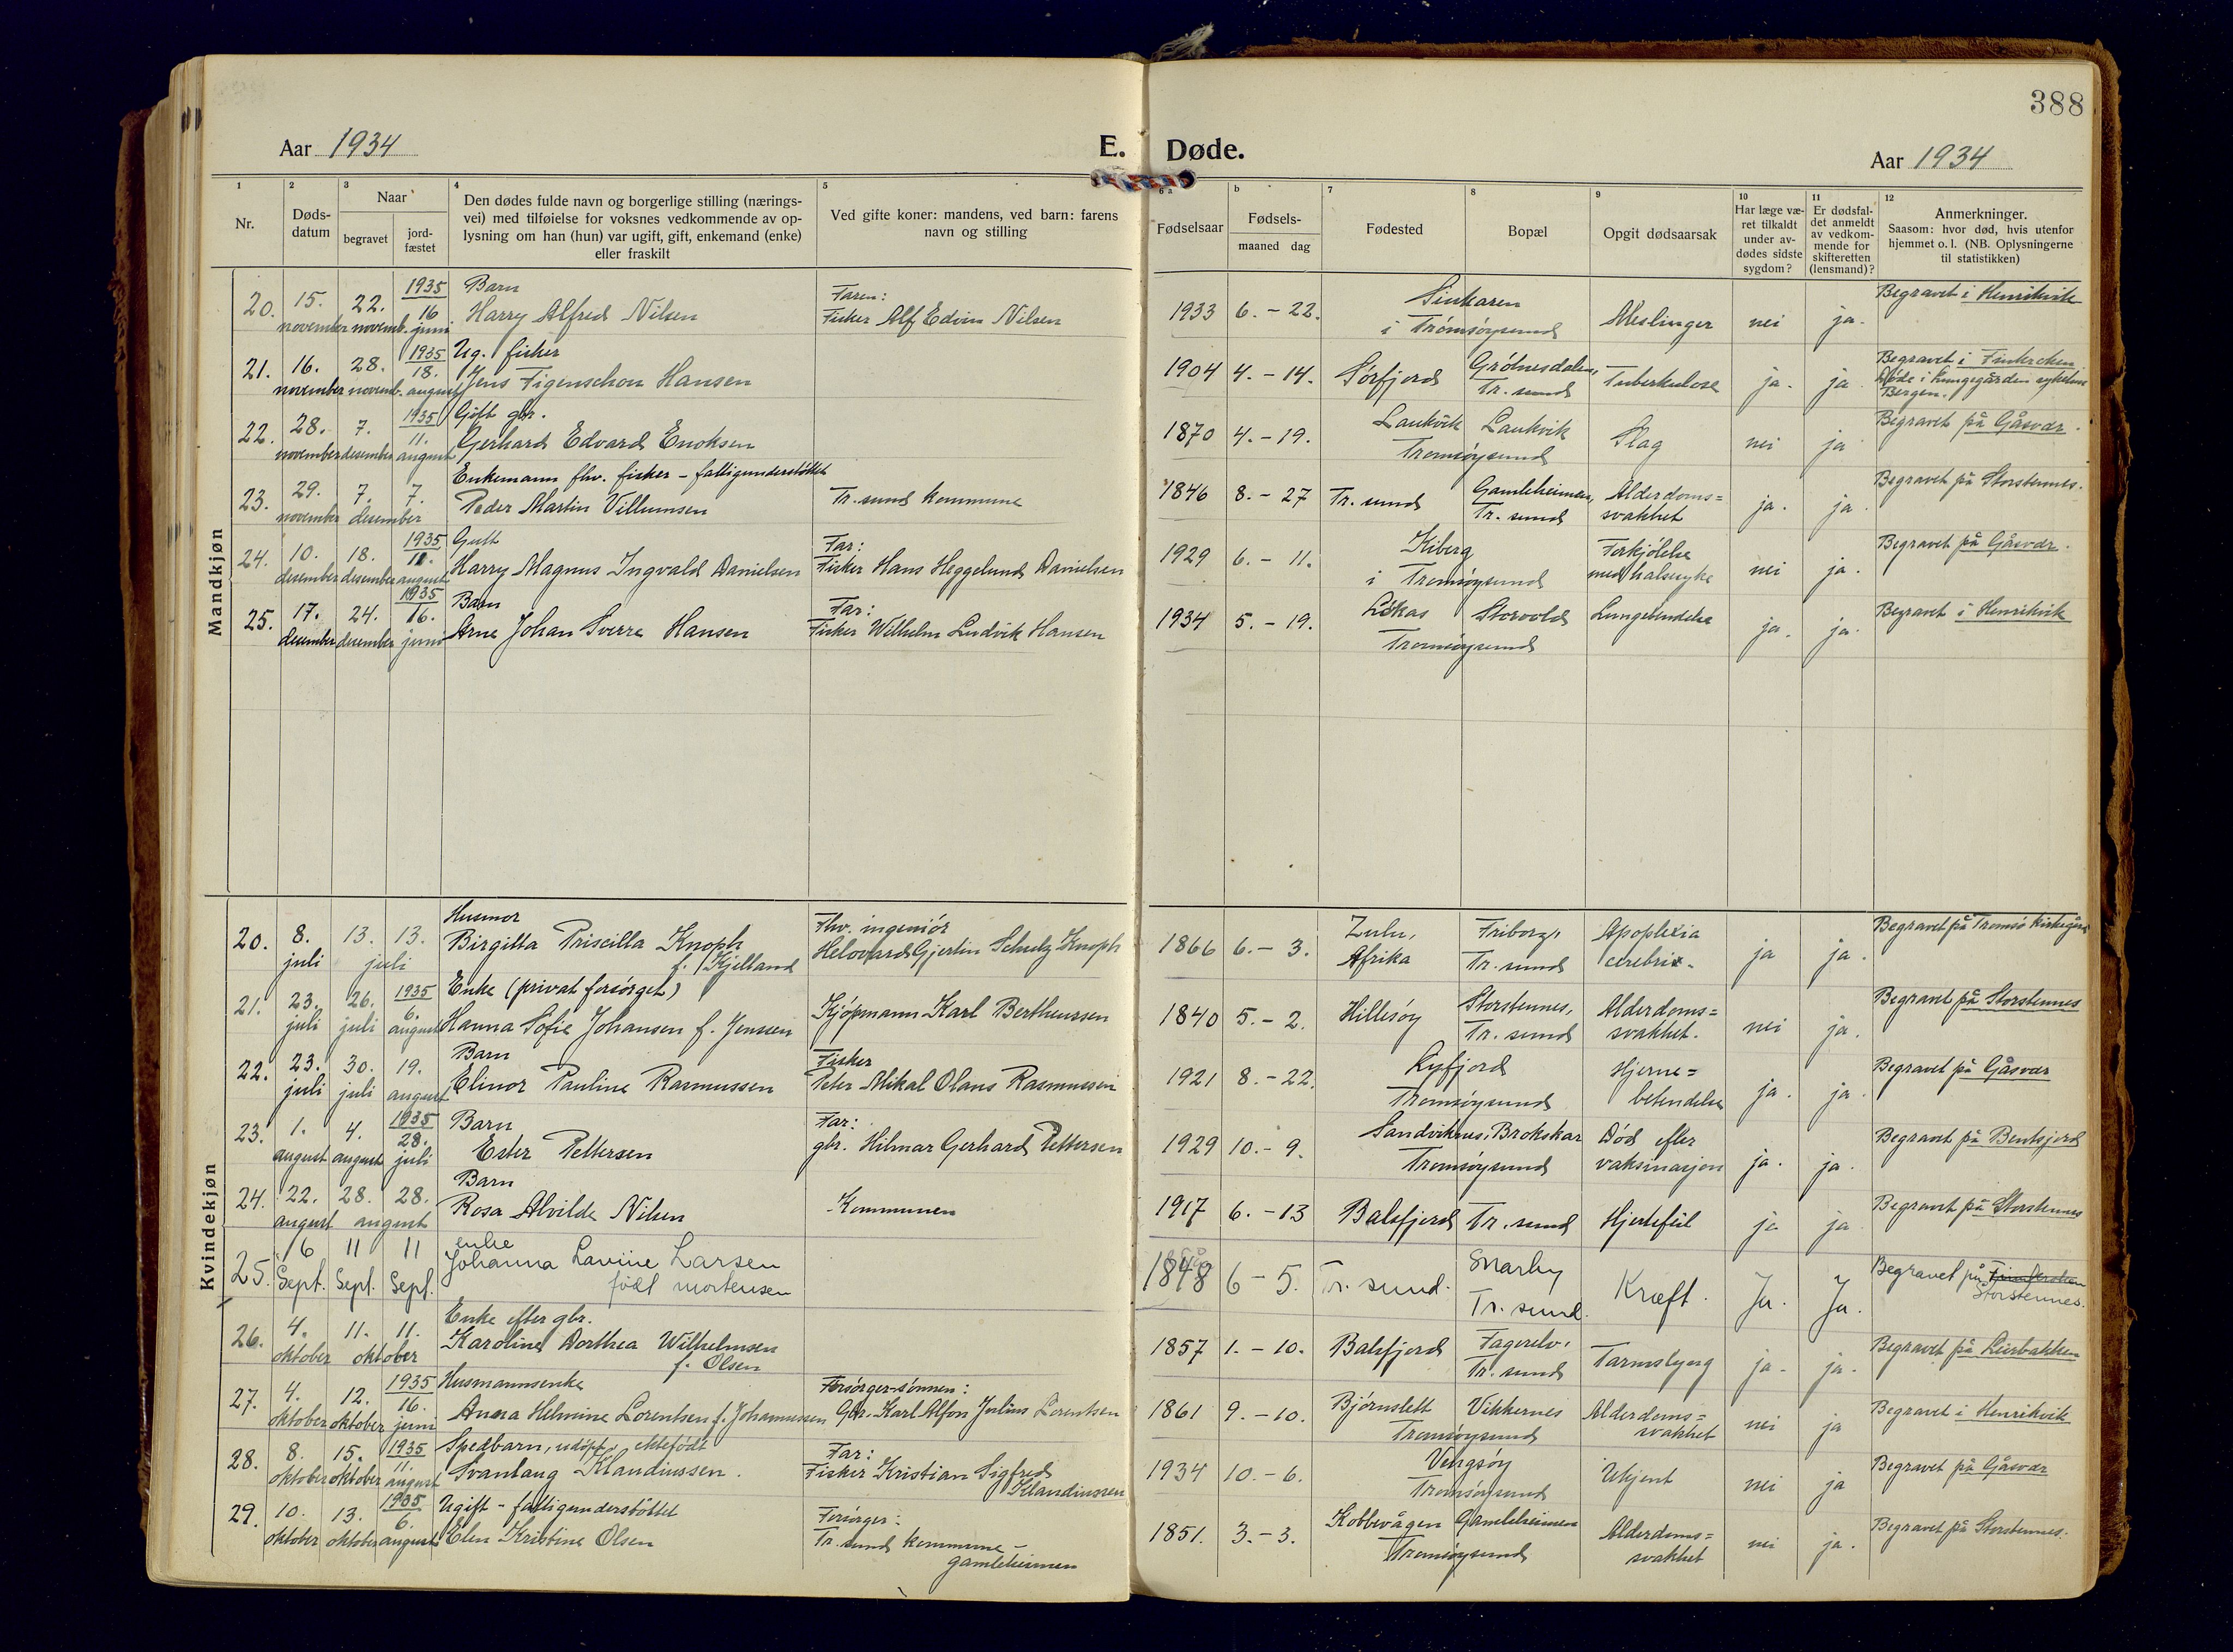 388
Aar 1934
E. Døde.
Aar 1934
1 Nr.
2 Døds-datum
3 Naar
begravet
jord-fæstet
4 Den dødes fulde navn og borgerlige stilling (nærings-
vei) med tilføielse for voksnes vedkommende av op-
lysning om han (hun) var ugift, gift, enkemand (enke)
eller fraskilt
5 Ved gifte koner: mandens, ved barn: farens
navn og stilling
6 a Fødselsaar
b Fødsels-
maaned dag
7 Fødested
8 Bopæl
9 Opgit dødsaarsak
10 Har læge væ-
ret tilkaldt
under av-
dødes sidste
sygdom?
11 Er dødsfal-
det anmeldt
av vedkom-
mende for
skifteretten
(lensmand)?
12 Anmerkninger.
Saasom: hvor død, hvis utenfor
hjemmet o. l. (NB. Oplysningerne
til statistikken)
Mandkjøn
20. 15. november 22. novemb. 1935 16 juni
Barn
Harry Alfred Nilsen
Faren:
Fisker Alf Edvin Nilsen
1933 6. - 22.
i Tromsøysund
Meslinger nei ja.
Begravet i Henrikvik
21. 16. november 28. novemb. 1935 18. august
Ug. fisker
Jens Figenschou Hansen
1904 4. - 14. Sørfjord
Tr. sund
Tuberkulose ja. ja
Begravet i Finkroken
Bergen.
22. 28. november 7. desember 1935 11. august
Gift gbr.
Gerhard Edvard Enoksen
1870 4. - 19. Laukvik Laukvik
Tromsøysund
Slag nei ja
Begravet på Gåsvær.
23. 29. november 7. 7. desember
Enkemann fhv. fisker - fattigunderstøttet
Peder Martin Villumsen
Tr. sund kommune
1846 8. - 27 Tr. sund Gamleheimen,
Tr. sund
Alderdoms=
svakhet ja. ja.
Begravet på Storstennes.
24. 10. desember 18. desember 1935 11. august
Gutt
Harry Magnus Ingvald Danielsen
Far:
Fisker Hans Heggelund Danielsen
1929 6. - 11. Kiberg
i Tromsøysund
Forkjølelse
med halssyke nei ja.
Begravet på Gåsvær.
25. 17. desember 24. desember 1935 16. juni
Barn
Arne Johan Sverre Hansen
Far:
Fisker Wilhelm Ludvik Hansen
1934 5. - 19. Storvold
Tromsøysund
Lungebetendelse ja. ja.
Begravet i Henrikvik
Kvindekjøn
20. 8. juli 13. 13. juli
Husmor
Birgitta Priscilla Knoph
f. Kjelland
Fhv. ingeniør
Gjertin Schulz Knoph
1866 6. - 3. Zulu,
Afrika
Friborg,
Tr. sund
Apoplexia
cerebri. ja ja.
Begravet på Tromsø kirkegård
21. 23. juli 26. juli 1935 6. august
Enke (privat forsørget)
Hanna Sofie Johansen f. Jenssen
Kjøpmann Karl Bertheussen
1840 5. - 2. Hillesøy
Storstennes,
Tr. sund
Alderdoms=
svakhet. nei ja.
Begravet på Storstennes
22. 23. juli 30. juli 19. august
Barn
Elinor Pauline Rasmussen
Fisker
Peter Mikal Olaus Rasmussen
1921 8. - 22. Kyfjord
Tromsøysund
Hjerne=
betendelse ja. ja.
Begravet på Gåsvær
23. 1. august 4. august 1935 28. juli
Barn
Ester Pettersen
Far:
gbr. Hilmar Gerhard Pettersen
1929 10. - 9. Sandviknes, Brokskar
Tromsøysund
Død efter
vaksinasjon ja. ja.
Begravet på Bentsjord
24. 22. august 28. 28. august
Barn
Rosa Alvilde Nilsen
Kommunen
1917 6. - 13 Balsfjord Tr. sund Hjertefeil ja ja
Begravet på Storstennes
25. 6 Sept. 11 Sept. 11 Sept.
enke
Johanna Lavine Larsen
født Mortensen
1848 6 - 5. Tr. sund. Snarby
Tr. sund.
Kræft. Ja. Ja.
Begravet på Finkroken
Storstennes.
26. 4. oktober 11. 11. oktober
Enke efter gbr.
Karoline Dorthea Wilhelmsen
f. Olsen
1857 1. - 10. Balsfjord Fagerelv.
Tr. sund
Tarmslyng ja. ja.
Begravet på Leirbakken
27. 4. oktober 12. oktober 1935 16. juni
Husmannsenke
Anna Helmine Lorentsen f. Johannessen
Forsørger-sønnen:
Gbr. Karl Alfon Julius Lorentsen
1861 9. - 10. Bjørnslett Vikkernes
Tromsøysund
Alderdoms=
svakhet nei ja
Begravet i Henrikvik
28. 8. oktober 15. oktober 1935 11. august
Spedbarn, udøpt, ektefødt
Svanlaug Klaudiussen.
Far:
Fisker Kristian Sigfred
Klaudiussen
1934 10. - 6. Vengsøy
Tromsøysund
Ukjent nei ja
Begravet på Gåsvær
29. 10. oktober 13. oktober 1935 6. august
Ugift - fattigunderstøttet
Elen Kristine Olsen
Forsørger:
Tr. sund kommune -
gamleheimen
1851. 3. - 3. Kobbevågen Gamleheimen
Tromsøysund
Alderdoms=
svakhet nei ja.
Begravet på Storstennes.